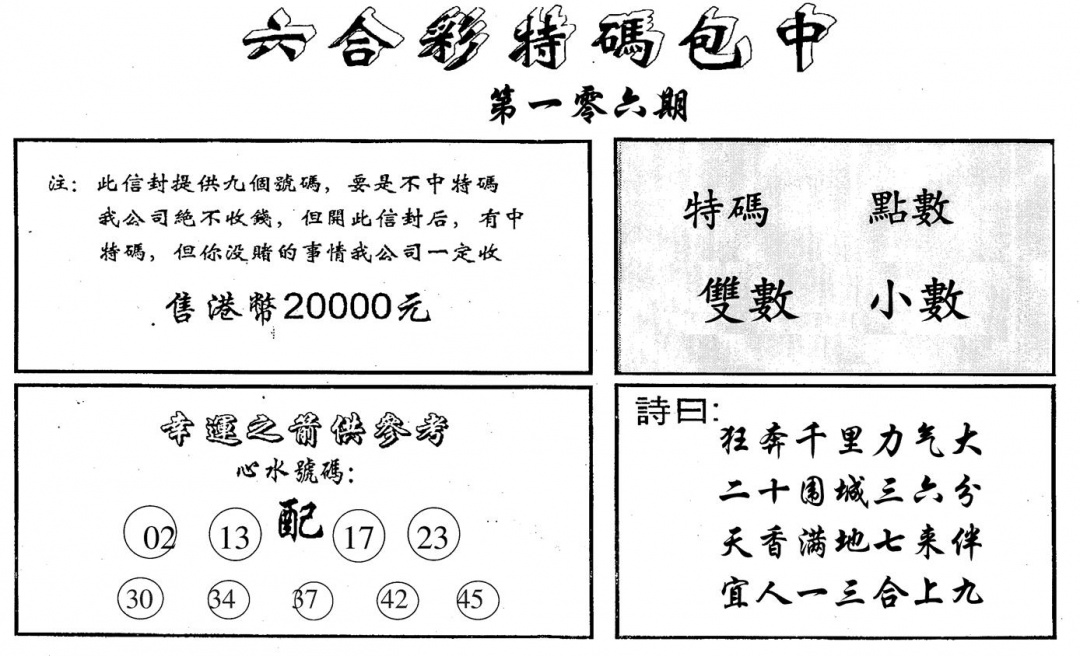 六合彩特碼包中
第一零六期
注：此信封提供九個號碼，要是不中特碼
我公司絕不收錢，但開此信封后，有中
特碼，但你没賭的事情我公司一定收
售港幣20000元
特碼 點數
雙數 小數
幸運之箭供參考
心水號碼：
02 13 配 17 23
30 34 37 42 45
詩曰：
狂奔千里力气大
二十围城三六分
天香满地七来伴
宜人一三合上九